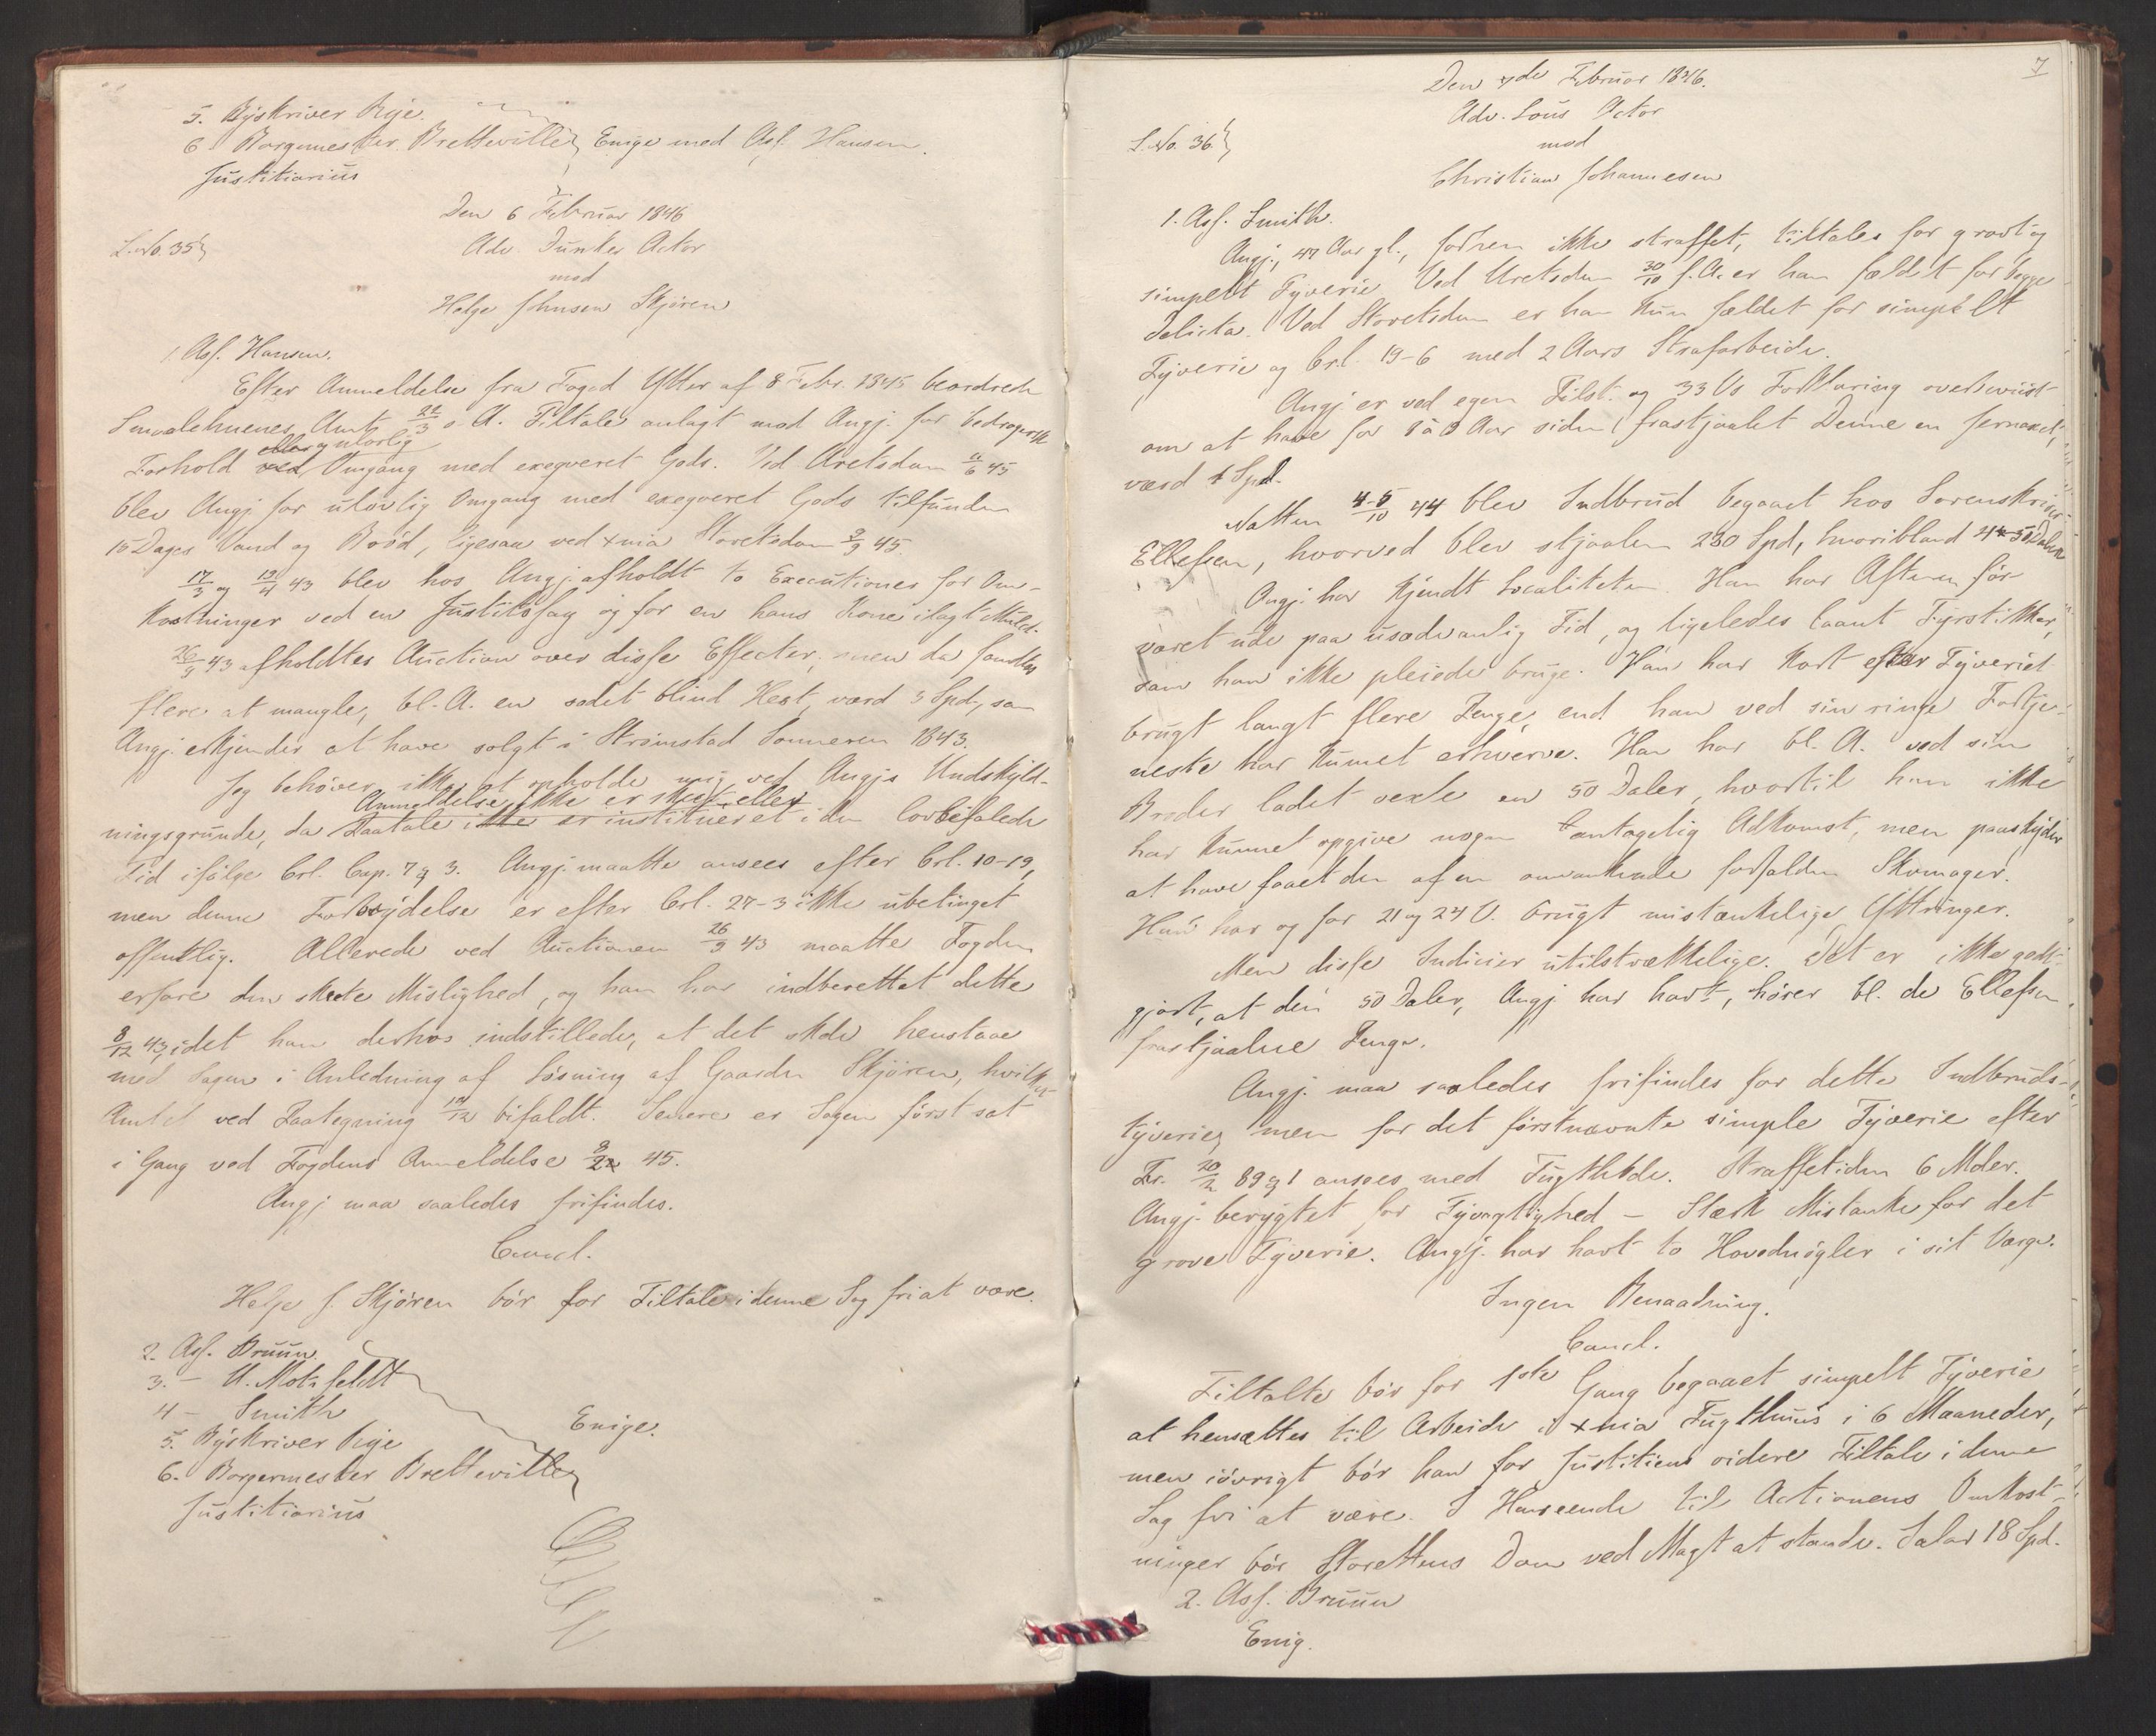 5. Byskriver Rye.
6 Borgemester Bretteville Enige med Ass. Hansen.
Justitiarius
Den 6 Februar 1846
L. No. 35
Adv Dunker Actor
mod
Helge Johnsen Skjören
1. Ass. Hansen.
Efter Anmeldelse fra Foged Ytter af 8 Febr. 1845 beordrede
Smaalehnenes Amt 22/3 s. A. Tiltale anlagt mod Angj. for bedragersk
Forhold eller ulovlig ved Omgang med exeqveret Gods. Ved Aretsdom 11/6 45
blev Angj for ulovlig Omgang med exeqveret Gods tilfunden
15 Dages Vand og Bröd, ligesaa ved Xnia Storetsdom 9/9 45.
17/3 og 19/4 43 blev hos Angj. afholdt to Executioner for Om-
kostninger ved en Justitssag og for en hans Kone ilagt Mulct.
26/9 43 afholdtes Auction over disse Effecter, men da fandtes
flere at mangle, bl. A. en sadet blind Hest, værd 3 Spd., som
Angj. erkjender at have solgt i Strömstad Sommeren 1843.
Jeg behöver ikke at opholde mig ved Angjs Undskyld-
Anmeldelse ikke er skeet eller
ningsgrunde, da Paatale ikke er institueret i den lovbefalede
Tid ifölge Crl. Cap. 7 § 3. Angj. maatte ansees efter Crl. 10-19,
men denne Forbrydelse er efter Crl. 27-3 ikke ubetinget
offentlig. Allerede ved Auctionen 26/9 43 maatte Fogden
erfare den skeete Mislighed, og han har indberettet dette
8/12 43, idet han derhos indstillede, at det skde henstaae
med Sagen i Anledning af Lösning af Gaarden Skjören, hvilket
Amtet ved Paategning 12/12 bifaldt. Senere er Sagen först sat
i Gang ved Fogdens Anmeldelse 8/2 45.
Angj maa saaledes frifindes.
Concl.
Helge J. Skjören bör for Tiltale i denne Sag fri at være.
2. Ass. Bruun.
3. - U. Motzfeldt
4 - Smith
5. Byskriver Rye
6. Borgermester Bretteville
Enige.
Justitiarius
7
Den 7de Februar 1846.
Adv. Lous Actor
L. No. 36
mod
Christian Johannesen
1. Ass. Smith.
Angj., 47 Aar gl., forhen ikke straffet, tiltales for grovt og
simpelt Tyverie. Ved Uretsdom 30/10 f. A. er han fældet for begge
delicta. Ved Storetsdom er han kun fældet for simpelt
Tyverie og Crl. 19-6 med 2 Aars Strafarbeide.
Angj er ved egen Tilst. og 33 Vs Forklaring overbeviist
om at have for 1 à 8 Aar siden frastjaalet Denne en
værd 1 Spd.
Natten 4-5/10 44 blev Indbrud begaaet hos Sorenskriver
Ellefsen, hvorved blev stjaalen 230 Spd, hvoriblandt 4 50 Daler
Angj. har kjendt Localiteten. Han har Aftenen för
været ude paa usædvanlig Tid, og ligeledes laant Fyrstikker,
som han ikke pleiede bruge. Han har kort efter Tyveriet
brugt langt flere Penge, end han ved sin ringe Fortje-
neste har kunnet erhverve. Han har bl. A. ved sin
Broder ladet vexle en 50 Daler, hvortil han ikke
har kunnet opgive nogen antagelig Adkomst, men paaskyder
at have faaet den af en omvankende forfalden Skomager.
Han har og for 21 og 24 V. brugt mistænkelige Yttringer.
Men disse Indicier utilstrækkelige. Det er ikke godt-
gjort, at den 50 Daler, Angj har havt, hörer bl. de Ellefsen
frastjaalne Penge.
Angj. maa saaledes frifindes for dette Indbruds-
tyverie, men for det förstnævnte simple Tyverie efter
Fr. 20/2 89 § 1 ansees med Tugthde. Straffetiden 6 Mder.
Angj. berygtet for Tyvagtighed - Stærk Mistanke for det
grove Tyverie. Angj. har havt to Hovednögler i sit Værge.
Ingen Benaadning.
Concl.
Tiltalte bör for 1ste Gang begaaet simpelt Tyverie
at hensættes til Arbeide i Xnia Tugthuus i 6 Maaneder,
men iövrigt bör han for Justitiens videre Tiltale i denne
Sag fri at være. I Henseende til Actionens Omkost-
ninger bör Storettens Dom ved Magt at stande. Salar 18 Spd.
2. Ass. Bruun
Enig.